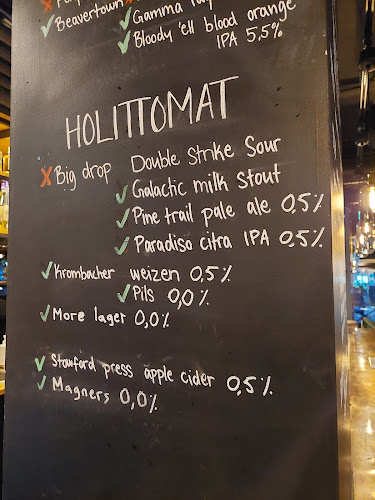 Beavertown Gamma ray
Bloody 'ell blood orange
IPA 5,5%
HOLITTOMAT
Big drop Double Strike Sour
Galactic milk Stout
Pine trail pale ale 0,5%
Paradiso citra IPA 0,5%
Krombacher weizen 0,5%
Pils 0,0%
More lager 0,0%
Stowford press apple cider 0,5%
Magners 0,0%